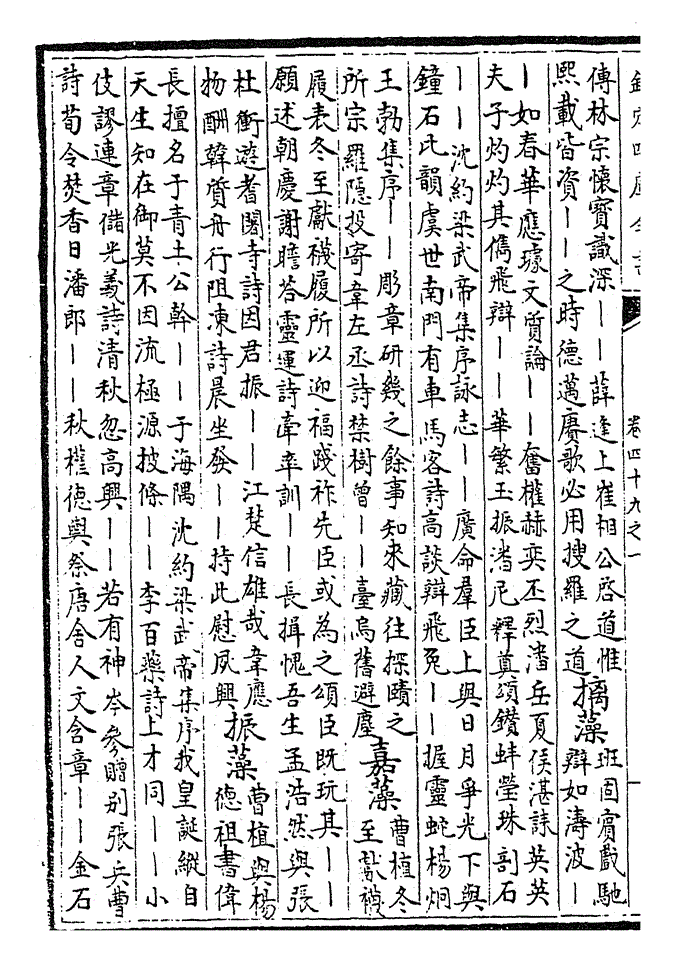 卷四十九之一
傳林宗懷寶識深——薛逢上崔相公啓道惟
熙載皆資——之時德邁賡歌必用搜羅之道
摛藻
班固賓戲馳
辯如濤波—
—如春華應璩文質論——奮權赫奕丕烈潘岳夏侯湛誄英英
夫子灼灼其儁飛辯——華繁玉振潘尼釋奠頌鑽蚌瑩珠剖石
——沈約梁武帝集序詠志——廣命羣臣上與日月爭光下與
鐘石比韻虞世南門有車馬客詩高談辯飛兔——握靈蛇楊炯
王勃集序——彫章研幾之餘事知來藏往探賾之
所宗羅隱投寄韋左丞詩禁樹曾——臺烏舊避塵
嘉藻
曹植冬
至獻襪
履表冬至獻襪履所以迎福踐祚先臣或為之頌臣既玩其——
願述朝慶謝瞻答靈運詩牽率訓——長揖愧吾生孟浩然與張
杜衝避耆闍寺詩因君振——江楚信雄哉韋應
物酬韓質舟行阻凍詩晨坐發——持此慰夙興
振藻
曹植與楊
德祖書偉
長擅名于青土公幹——于海隅沈約梁武帝集序我皇誕縱自
天生知在御莫不因流極源披條——李百藥詩上才同——小
伎謬連章儲光羲詩清秋忽高興——若有神岑參贈別張兵曹
詩荀令焚香日潘郎——秋權德輿祭唐舍人文含章——金石